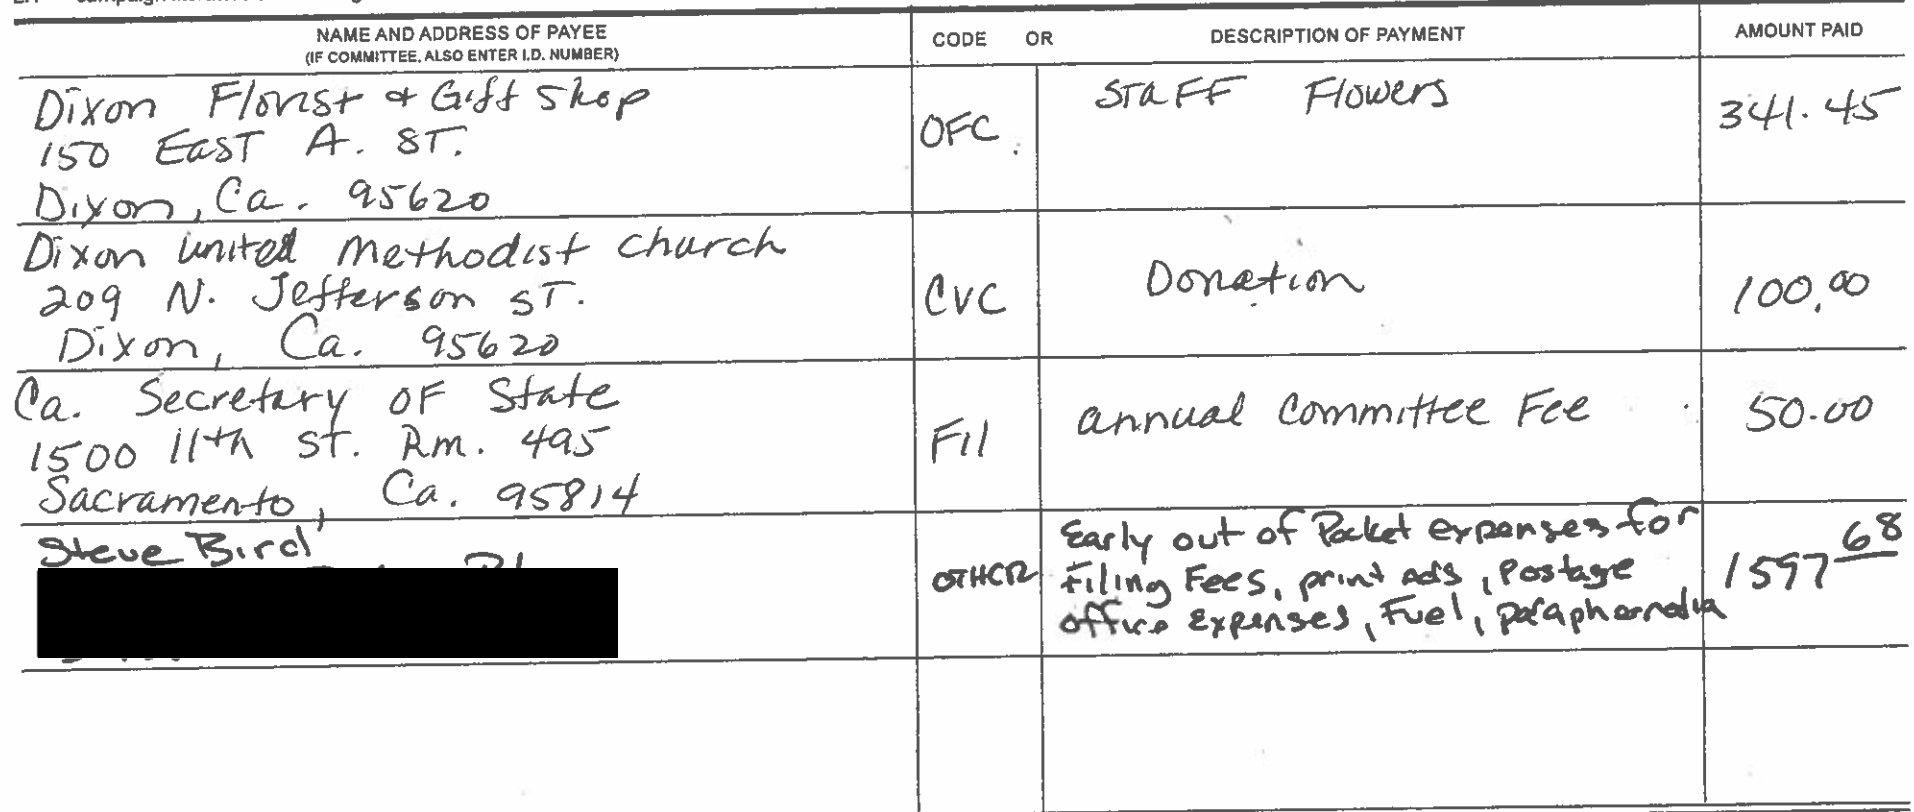 NAME AND ADDRESS OF PAYEE
(IF COMMITTEE, ALSO ENTER I.D. NUMBER)
CODE OR
DESCRIPTION OF PAYMENT
AMOUNT PAID
Dixon Florist & Gift Shop
150 East A. ST.
Dixon, Ca. 95620
OFC
Staff Flowers
341.45
Dixon United Methodist Church
209 N. Jefferson ST.
Dixon, Ca. 95620
CVC
Donation
100.00
Ca. Secretary of State
1500 11th St. Rm. 495
Sacramento, Ca. 95814
Fil
annual Committee Fee
50.00
Steve Bird
OTHER
Early out of Pocket expenses for
Filing Fees, print ads, Postage
office Expenses, Fuel, paraphernalia
1597 68